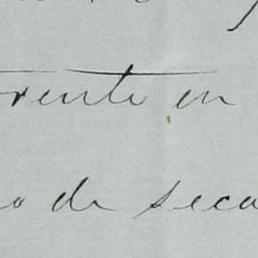 rente en
o de seca